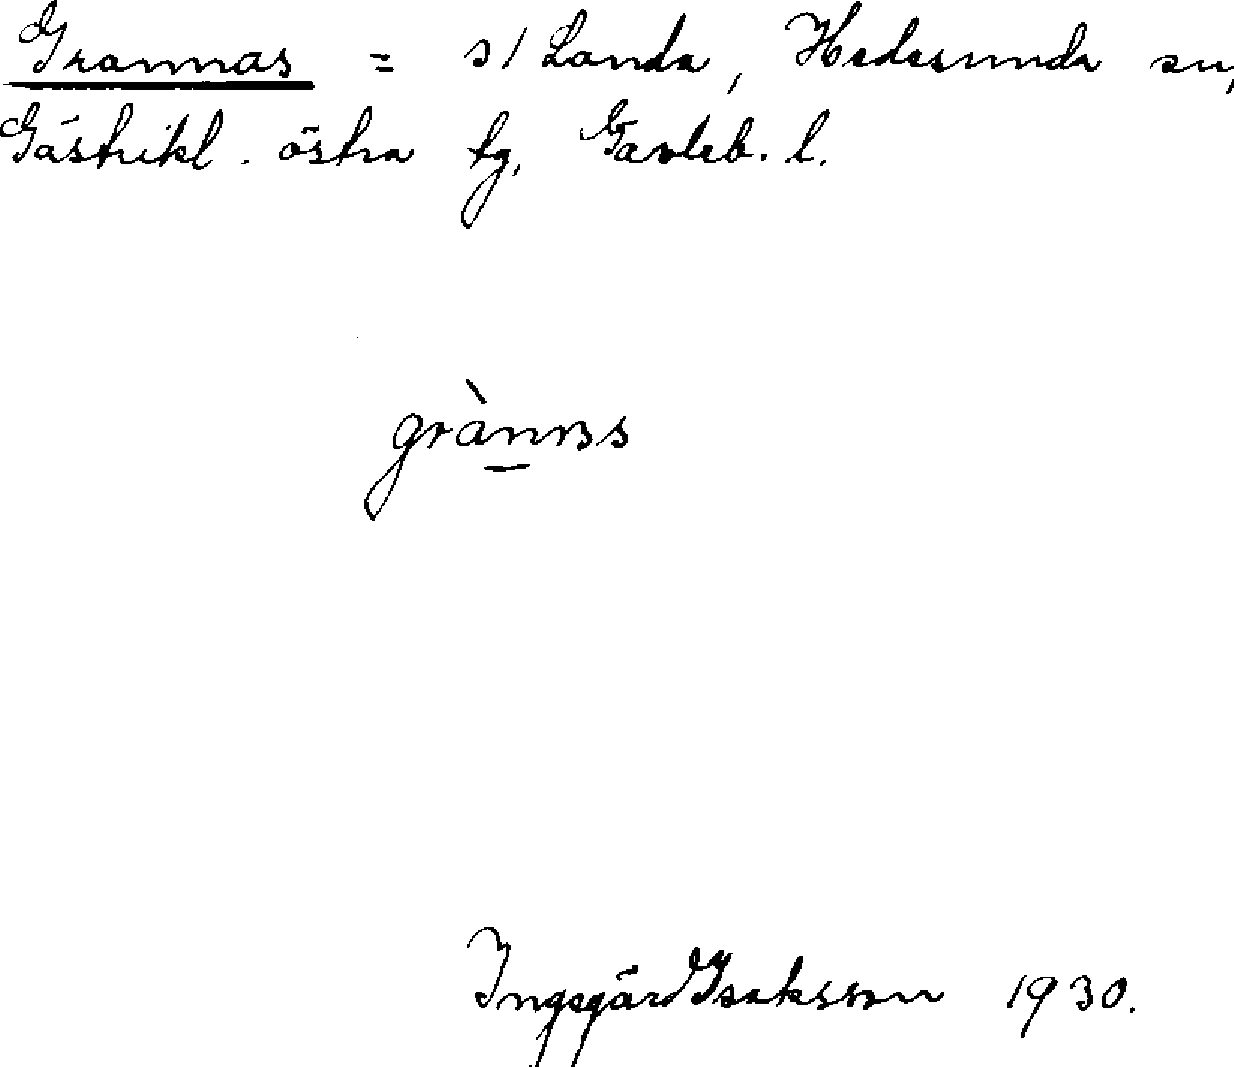 Grannas = s/ Landa, Hedesunda sn,
Gästrikl. östra tg, Gävleb. l.
Ingegärd Isaksson 1930.